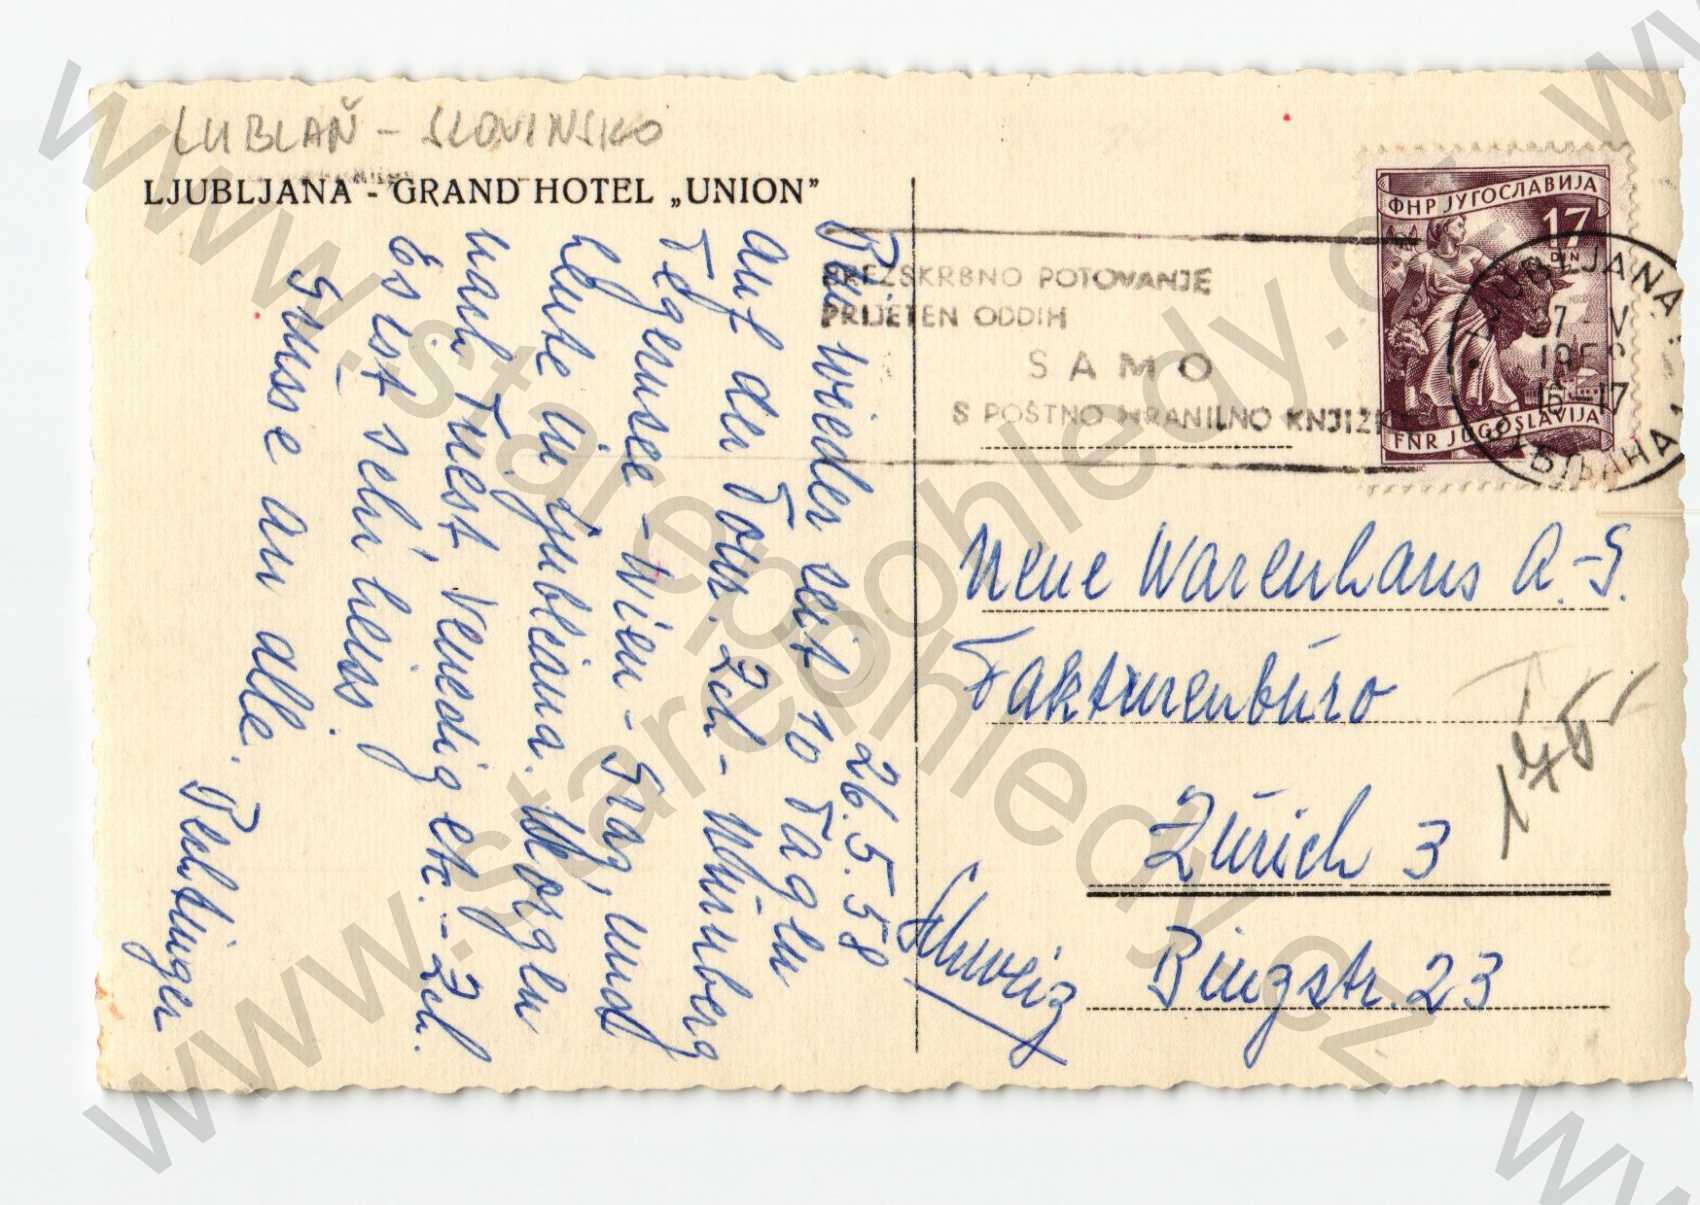 LUBLAŇ - SLOVINSKO
LJUBLJANA - GRAND HOTEL „UNION”
26.5.58
Bin wieder seit 10 Tagen
auf der Tour. Zch - Nürnberg
Tegernsee - Wien - Graz, und
heute in Ljubljana. Morgen
nach Triest, Venedig etc. - Zch.
Es ist sehr heiss.
Grüsse an alle.
BREZSKRBNO POTOVANJE
PRIJETEN ODDIH
SAMO
S POŠTNO HRANILNO KNJIŽI
ФНР ЈУГОСЛАВИЈА
17
DIN
FNR JUGOSLAVIJA
LJUBLJANA 1
16-17
ЉУБЉАНА 1
Neue Warenhaus A.-G.
Fakturenbüro
Zürich 3
Binzstr. 23
Schweiz
www.starepohledy.cz
www.starepohledy.cz